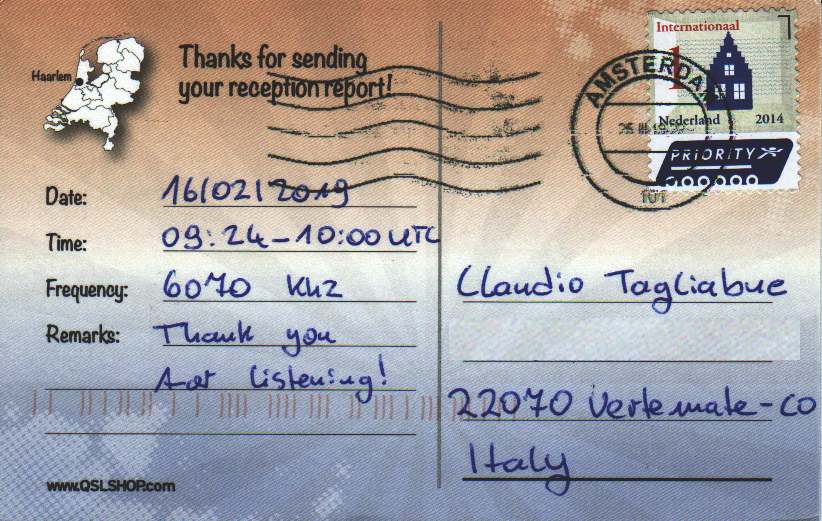 Haarlem
Thanks for sending
your reception report!
Date: 16/02/2019
Time: 09:24-10:00 UTC
Frequency: 6070 KHz
Remarks: Thank you
for listening!
www.QSLSHOP.com
Internationaal
1
Nederland 2014
PRIORITY
AMSTERDAM
101
Claudio Tagliabue
22070 Vertemate-CO
Italy